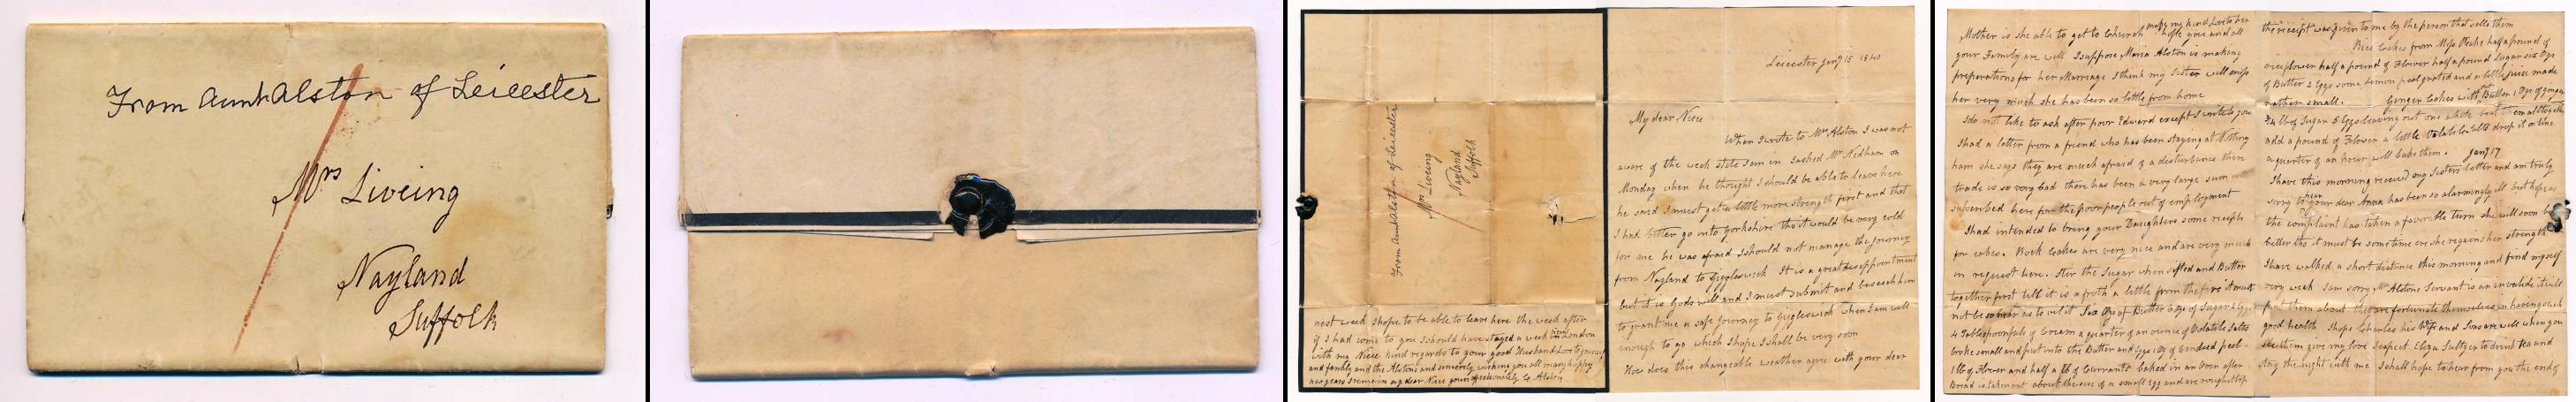 From Aunt Alston of Leicester
Mrs Liveing
Nayland
Suffolk
From Aunt Alston of Leicester
Mrs Liveing
Nayland
Suffolk
next week I hope to be able to leave here the week after
if I had come to you I should have stayed a week in London
with my Niece kind regards to your good Husband Love to
and family and the Alstons and sincerely wishing you all many happy
new years I remain my dear Niece yours affectionately Alston
Leicester Jany 15 1840
My dear Niece
When I wrote to Mrs Alston I was not
aware of the weak state I am in I asked Mr Nedham on
Monday when he thought I should be able to leave here
he said I must get a little more strength first and that
I had better go into Yorkshire tho it would be very cold
for me he was afraid I should not manage the journey
from Nayland to Giggleswick It is a great disappointment
but it is Gods will and I must submit and beseech him
to grant me a safe journey to Giggleswick when I am well
enough to go which I hope I shall be very soon
How does this changeable weather agree with your dear
Mother is she able to get to Church my kind Love to her
I hope you and all
your Family are well I suppose Maria Alston is making
preparations for her Marriage I think my Sister will miss
her very much she has been so little from home
I do not like to ask after poor Edward except I write to you
I had a letter from a friend who has been staying at Notting
ham she says they are much afraid of a disturbance there
trade is so very bad there has been a very large sum
subscribed here for the poor people out of employment
I had intended to bring your Daughters some receipts
for cakes. Rock Cakes are very nice and are very much
in request here. Stir the Sugar when sifted and Butter
together first till it is a froth a little from the fire it must
not be so near as to oil it Six Ozs of Butter 6 Ozs of Sugar 2 Eggs
4 Tablespoonfuls of Cream a quarter of an ounce of Volatile Salts
broke small and put into the Butter and Eggs of Candied peel
1 lb of Flower and half a lb of Currants baked in an Oven after
Bread is taken out about the size of a small Egg and are rough at top
the receipt was given to me by the person that sells them
Rice Cakes from Miss Peake half a pound of
rice flower half a pound of Flower half a pound Sugar six Ozs
of Butter 2 Eggs some Lemon peel grated and a little juice made
rather small. Ginger Cakes with Butter 1 Oz of ginger
3/4 lb of Sugar 5 Eggs leaving out one white beat them all together
add a pound of Flower a little Volatile Salts drop it on tins
a quarter of an hour will bake them. Jany 17
I have this morning received my Sisters letter and am truly
sorry to hear your dear Anna has been so alarmingly ill but hope as
the complaint has taken a favorable turn she will soon be
better tho it must be some time ere she regains her strength
I have walked a short distance this morning and find myself
very weak I am sorry Mr Alstons Servant is an invalide it will
put them about they are fortunate themselves in having such
good health I hope Charles his Wife and Son are well when you
see them give my love I expect Eliza Sultzer to drink tea and
stay the night with me I shall hope to hear from you the end of